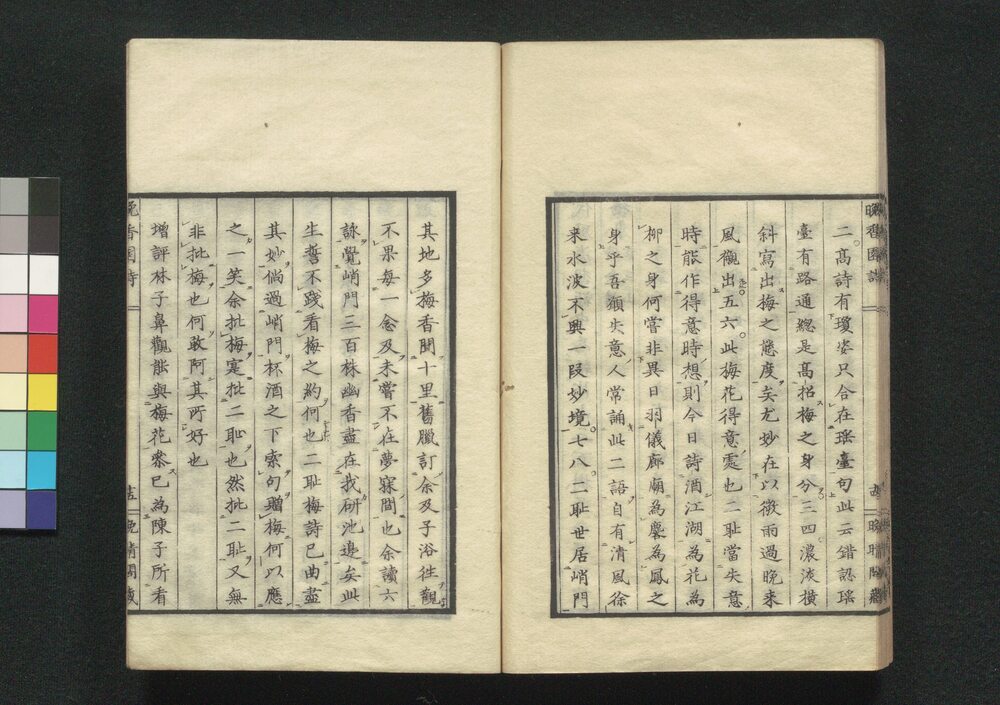 晩香園詩
二。高詩有瓊姿只合在瑤臺句此云錯認瑤
臺有路通總是高招梅之身分三四濃淡橫
斜寫出梅之態度矣尤妙在以微雨過晚來
風觀出五六此梅花得意處也二耻當失意
時能作得意時想則今日詩酒江湖為花為
柳之身何嘗非異日羽儀廊廟為麐為鳳之
身乎吾願失意人常誦此二語自有清風徐
来水波不興一段妙境七八。二耻世居峭門
其地多梅香聞十里舊臘訂余及子浴徃觀
不果每一念及未嘗不在夢寐間也余讀六
詠覺峭門三百株幽香盡在我研池邊矣此
生誓不踐看梅之約何也二耻梅詩已曲盡
其妙倘過峭門杯酒之下索句贈梅何以應
之一笑余批梅寔批二耻也然批二耻又無
非批梅也何敢阿其所好也
增評林子鼻觀能與梅花參已為陳子所看
晩香園詩